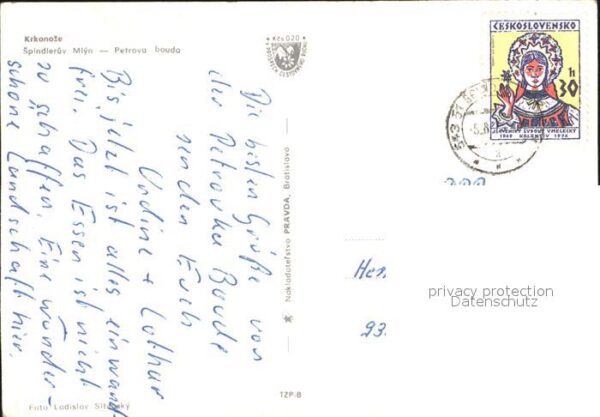 Krkonoše
Špindlerův Mlýn — Petrova bouda
Kčs 0,20
ČESKOSLOVENSKO
30 h
SLOVENSKÝ ĽUDOVÝ UMELECKÝ
KOLEKTÍV
1949 1974
543 51
Die besten Grüße von
der Petrovka Baude
senden Euch
Undine + Lothar
Bis jetzt ist alles einwand
frei. Das Essen ist nicht
zu schaffen. Eine wunder-
schöne Landschaft hier.
Nakladateľstvo PRAVDA, Bratislava
TZP-B
Foto Ladislav
Her
93
privacy protection
Datenschutz